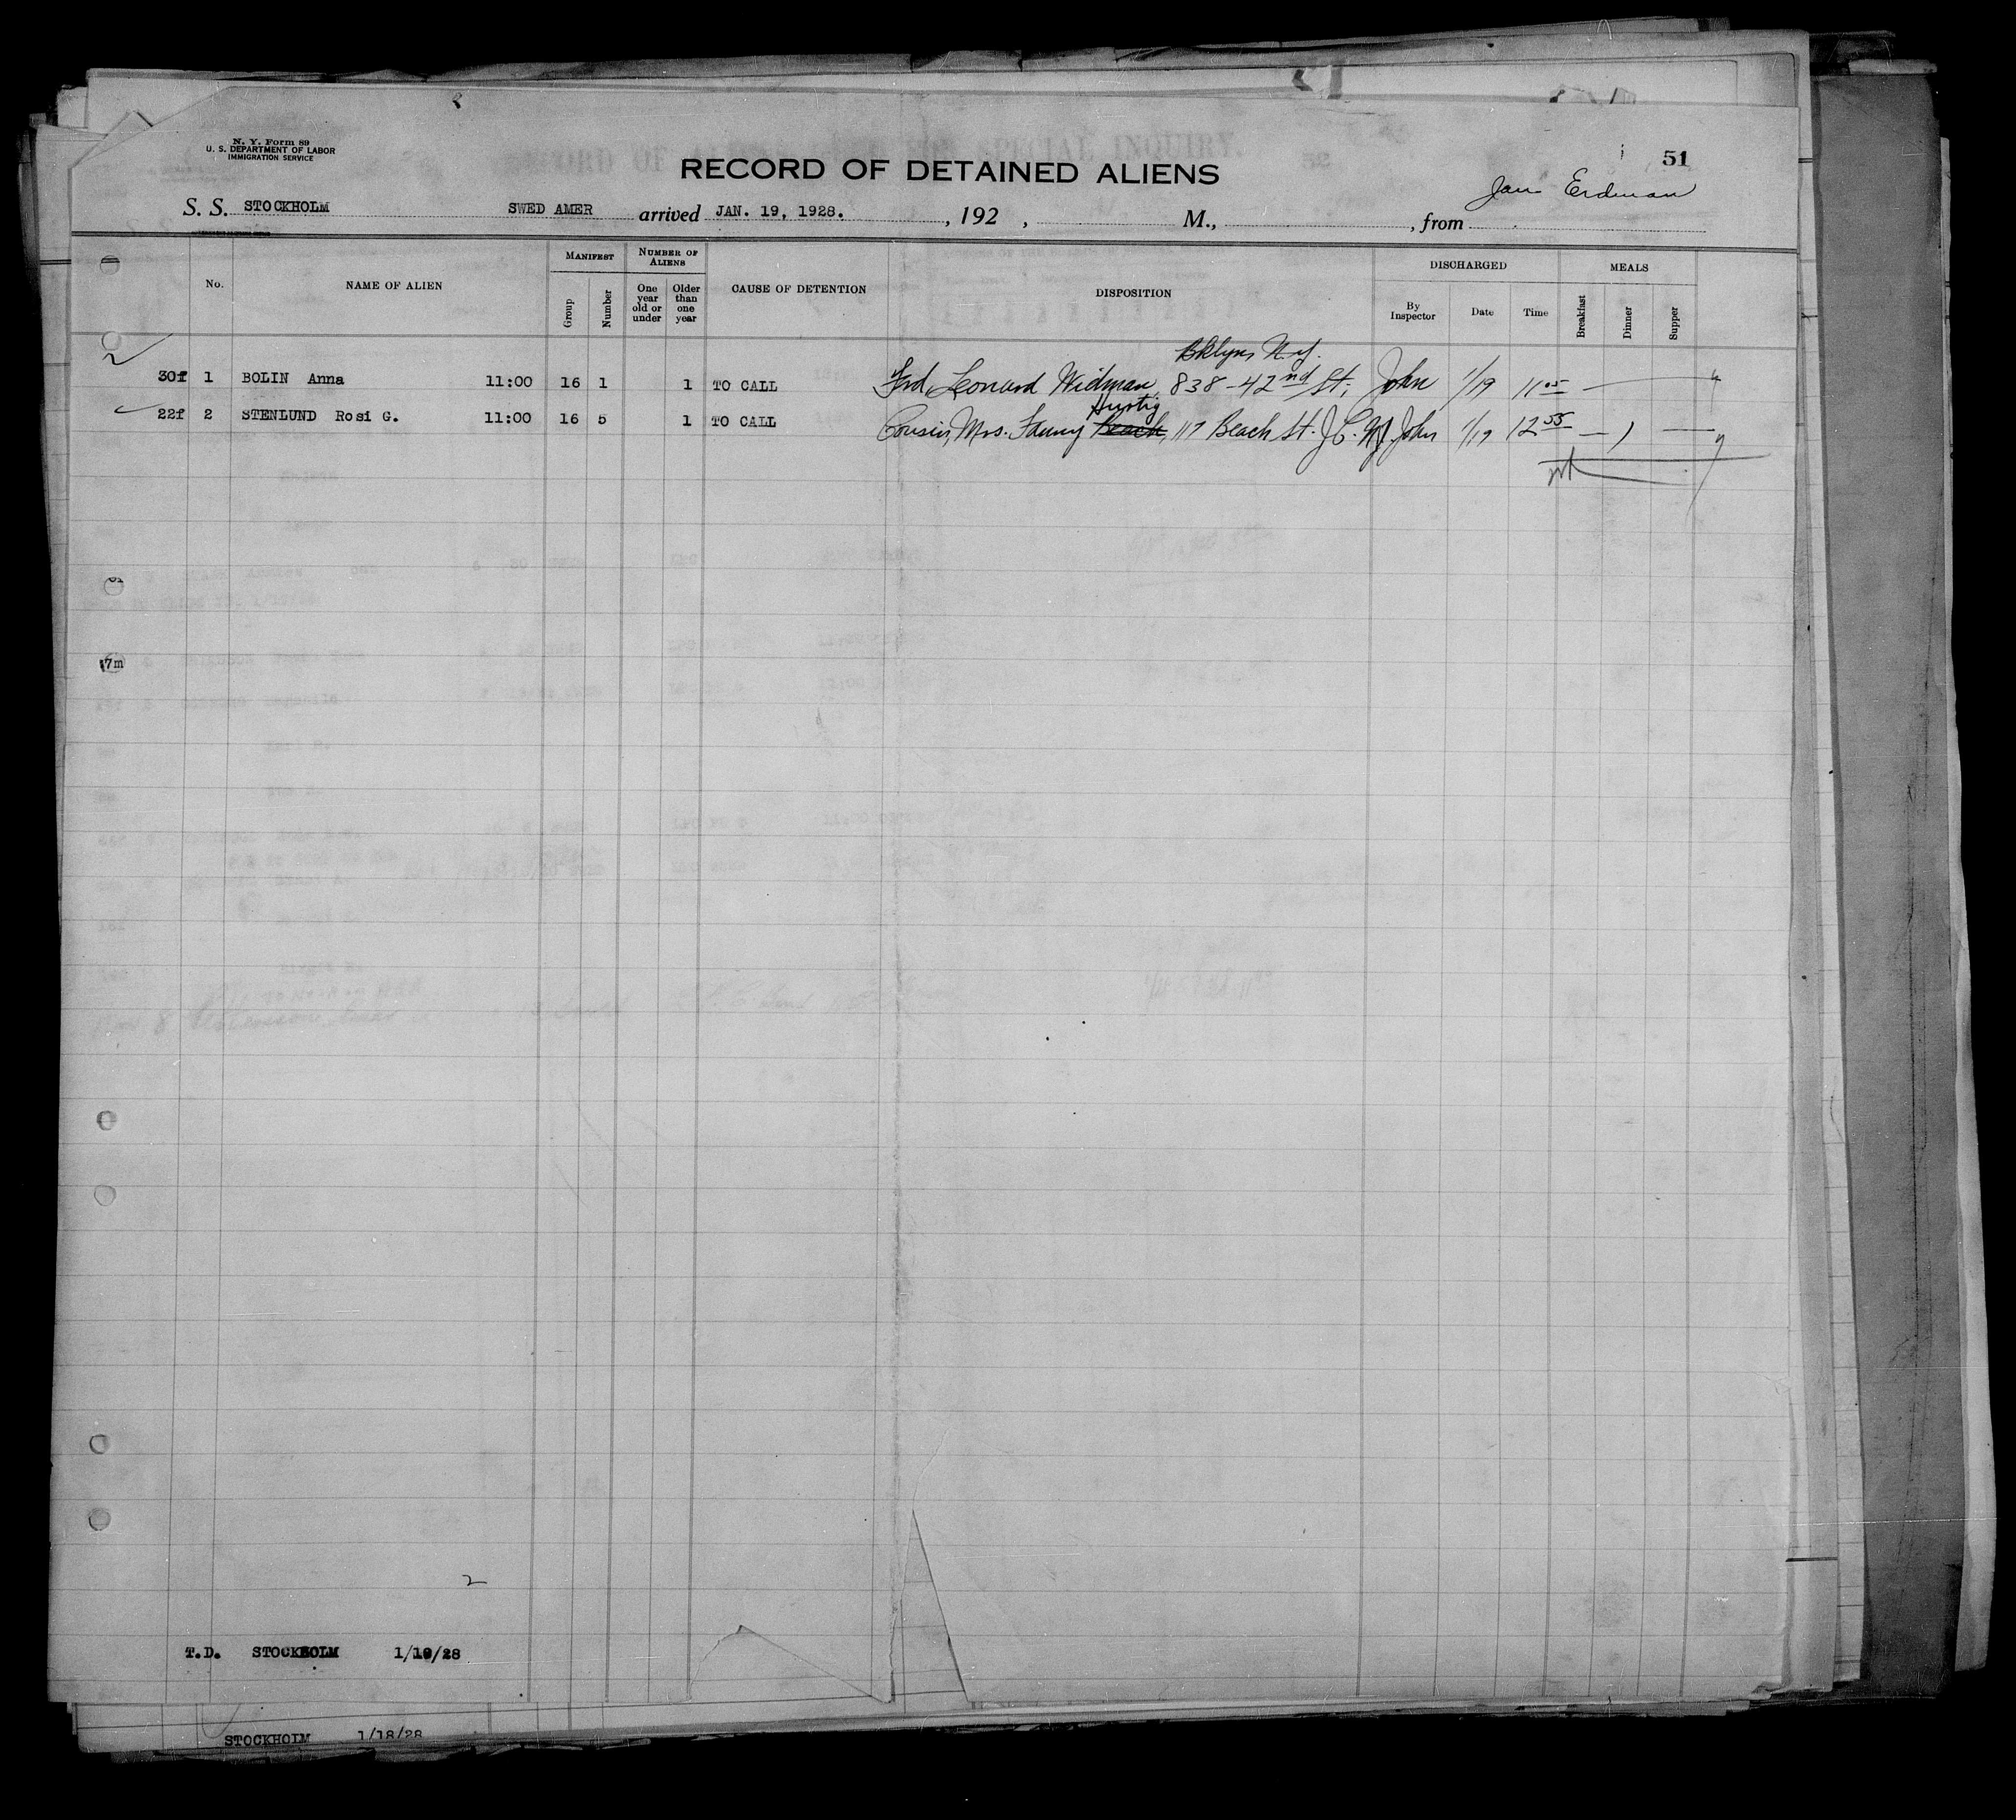 N. Y. Form 89
U. S. DEPARTMENT OF LABOR
IMMIGRATION SERVICE
51
RECORD OF DETAINED ALIENS
Erdman
S. S. STOCKHOLM SWED AMER arrived JAN. 19, 1928. , 192 , M., , from
No. NAME OF ALIEN MANIFEST Group Number NUMBER OF ALIENS One year old or under Older than one year CAUSE OF DETENTION DISPOSITION DISCHARGED By Inspector Date Time MEALS Breakfast Dinner Supper
Bklyn N.Y.
30f 1 BOLIN Anna 11:00 16 1 1 TO CALL Frd Leonard Widman 838-42nd St. John 1/19 11 05
Hustig
22f 2 STENLUND Rosi G. 11:00 16 5 1 TO CALL Cousin, Mrs. Fanny Beach, 117 Beach St. J.C. NJ John 1/19 12 55
17m
2
T.D. STOCKHOLM 1/19/28
STOCKHOLM 1/18/28